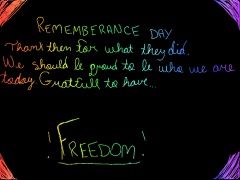 REMEMBERANCE DAY
Thank them for what they did.
We should be proud to be who we are
today Gratfull to have...
! FREEDOM!